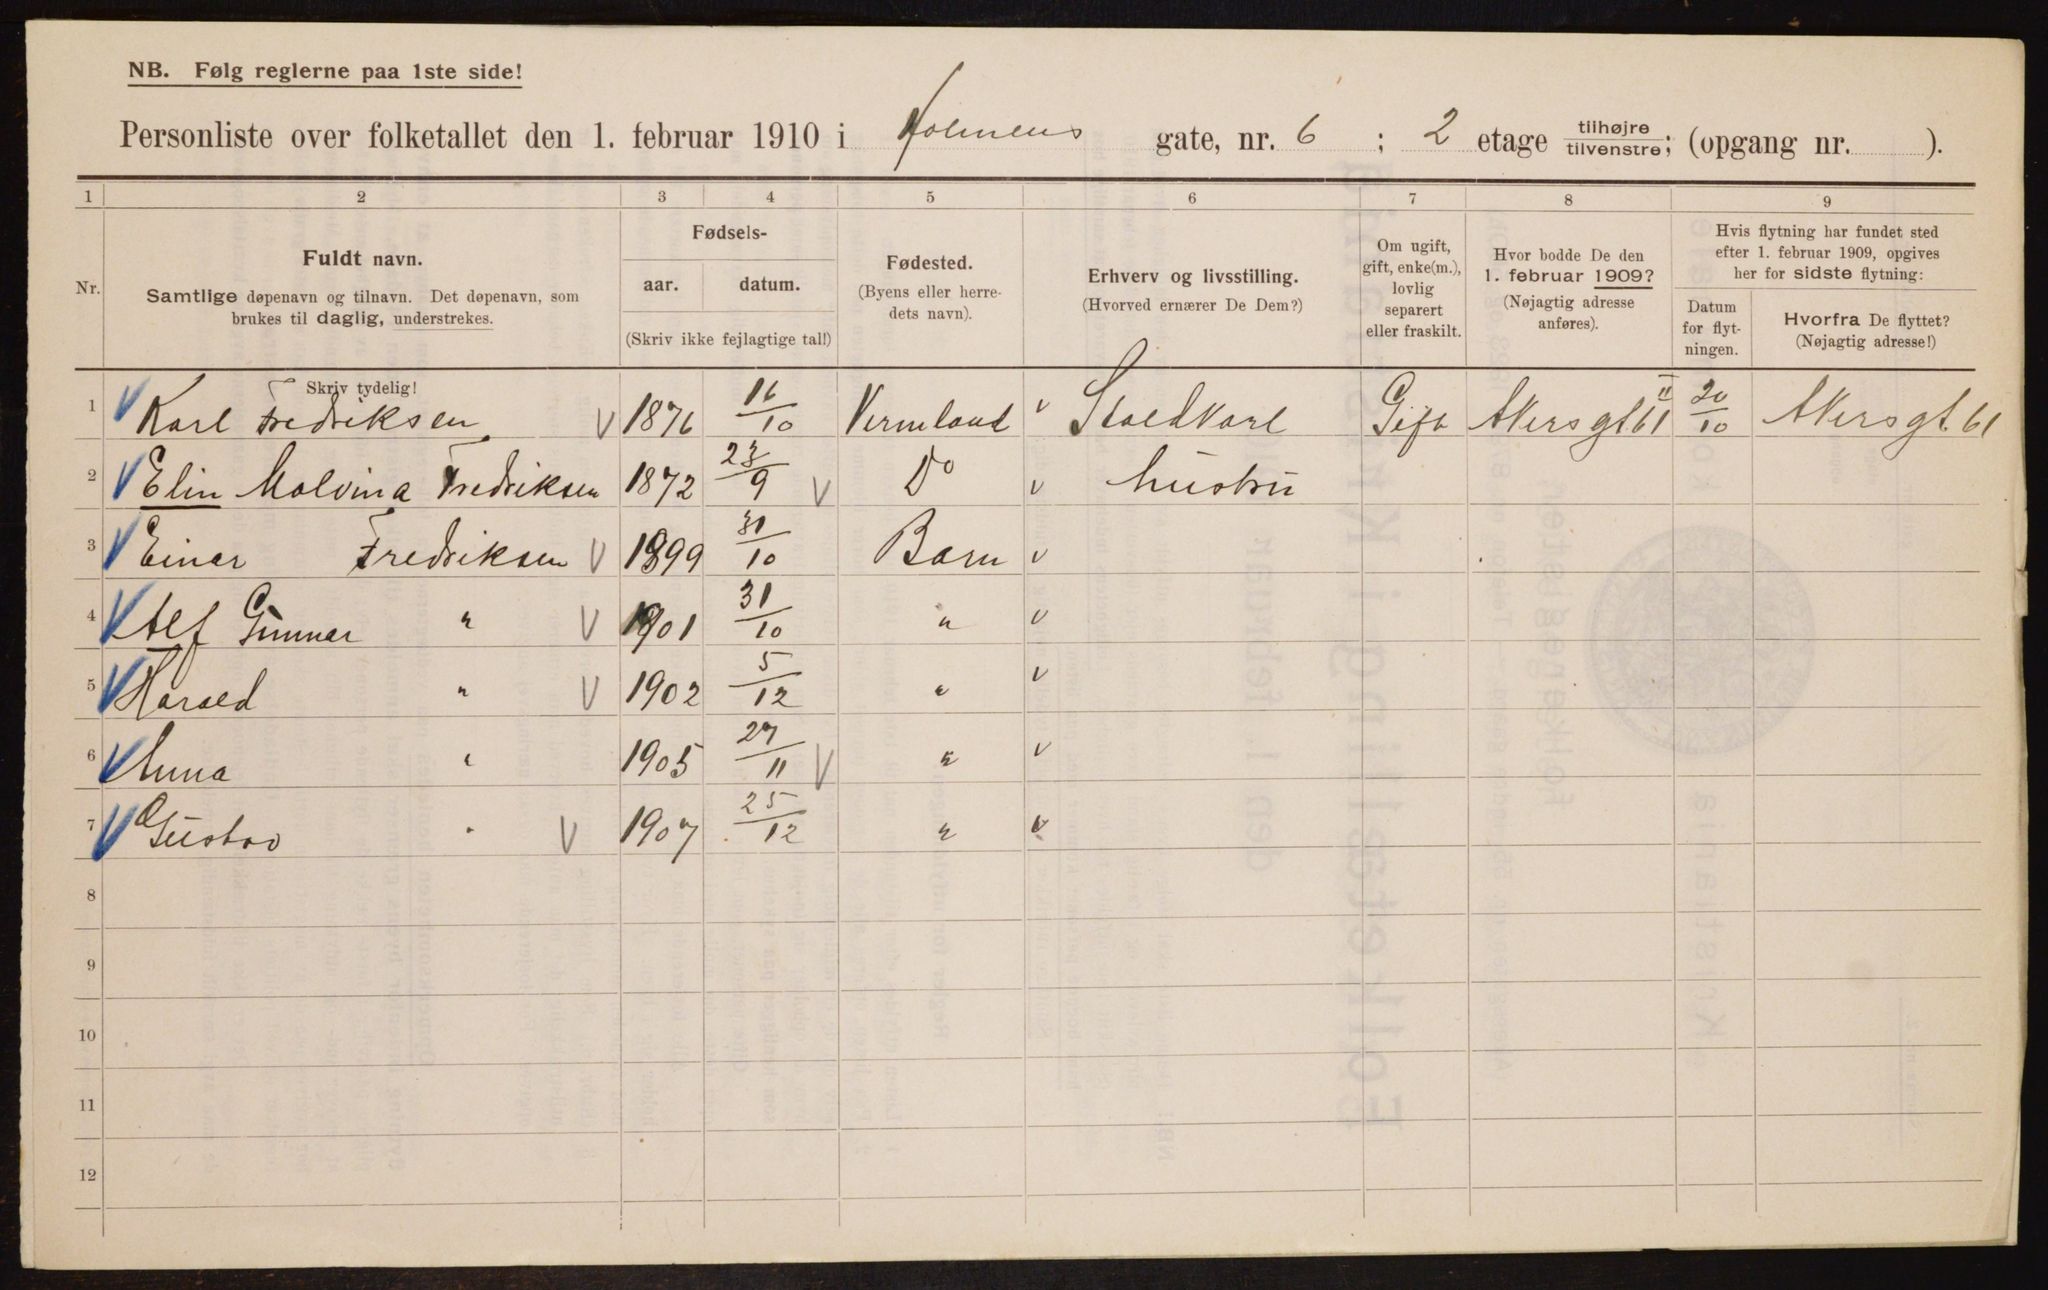 NB. Følg reglerne paa 1ste side!
Personliste over folketallet den 1. februar 1910 i Holmens gate, nr. 6 ; 2 etage tilhøjre tilvenstre; (opgang nr. ).
1 2 3 4 5 6 7 8 9
Nr.
Fuldt navn.
Samtlige døpenavn og tilnavn. Det døpenavn, som
brukes til daglig, understrekes.
Fødsels-
aar. datum.
(Skriv ikke fejlagtige tal!)
Fødested.
(Byens eller herre-
dets navn).
Erhverv og livsstilling.
(Hvorved ernærer De Dem?)
Om ugift,
gift, enke(m.),
lovlig
separert
eller fraskilt.
Hvor bodde De den
1. februar 1909?
(Nøjagtig adresse
anføres).
Hvis flytning har fundet sted
efter 1. februar 1909, opgives
her for sidste flytning:
Datum
for flyt-
ningen.
Hvorfra De flyttet?
(Nøjagtig adresse!)
Skriv tydelig!
1 Karl Fredriksen 1876 16/10 Vermland Staldkarl Gift Akersgt. 61 II 20/10 Akersgt. 61
2 Elin Malvina Fredriksen 1872 23/9 Do hustru
3 Einar Fredriksen 1899 31/10 Barn
4 Alf Gunnar " 1901 31/10 "
5 Harald " 1902 5/12 "
6 Anna " 1905 27/11 "
7 Gustav " 1907 25/12 "
8
9
10
11
12